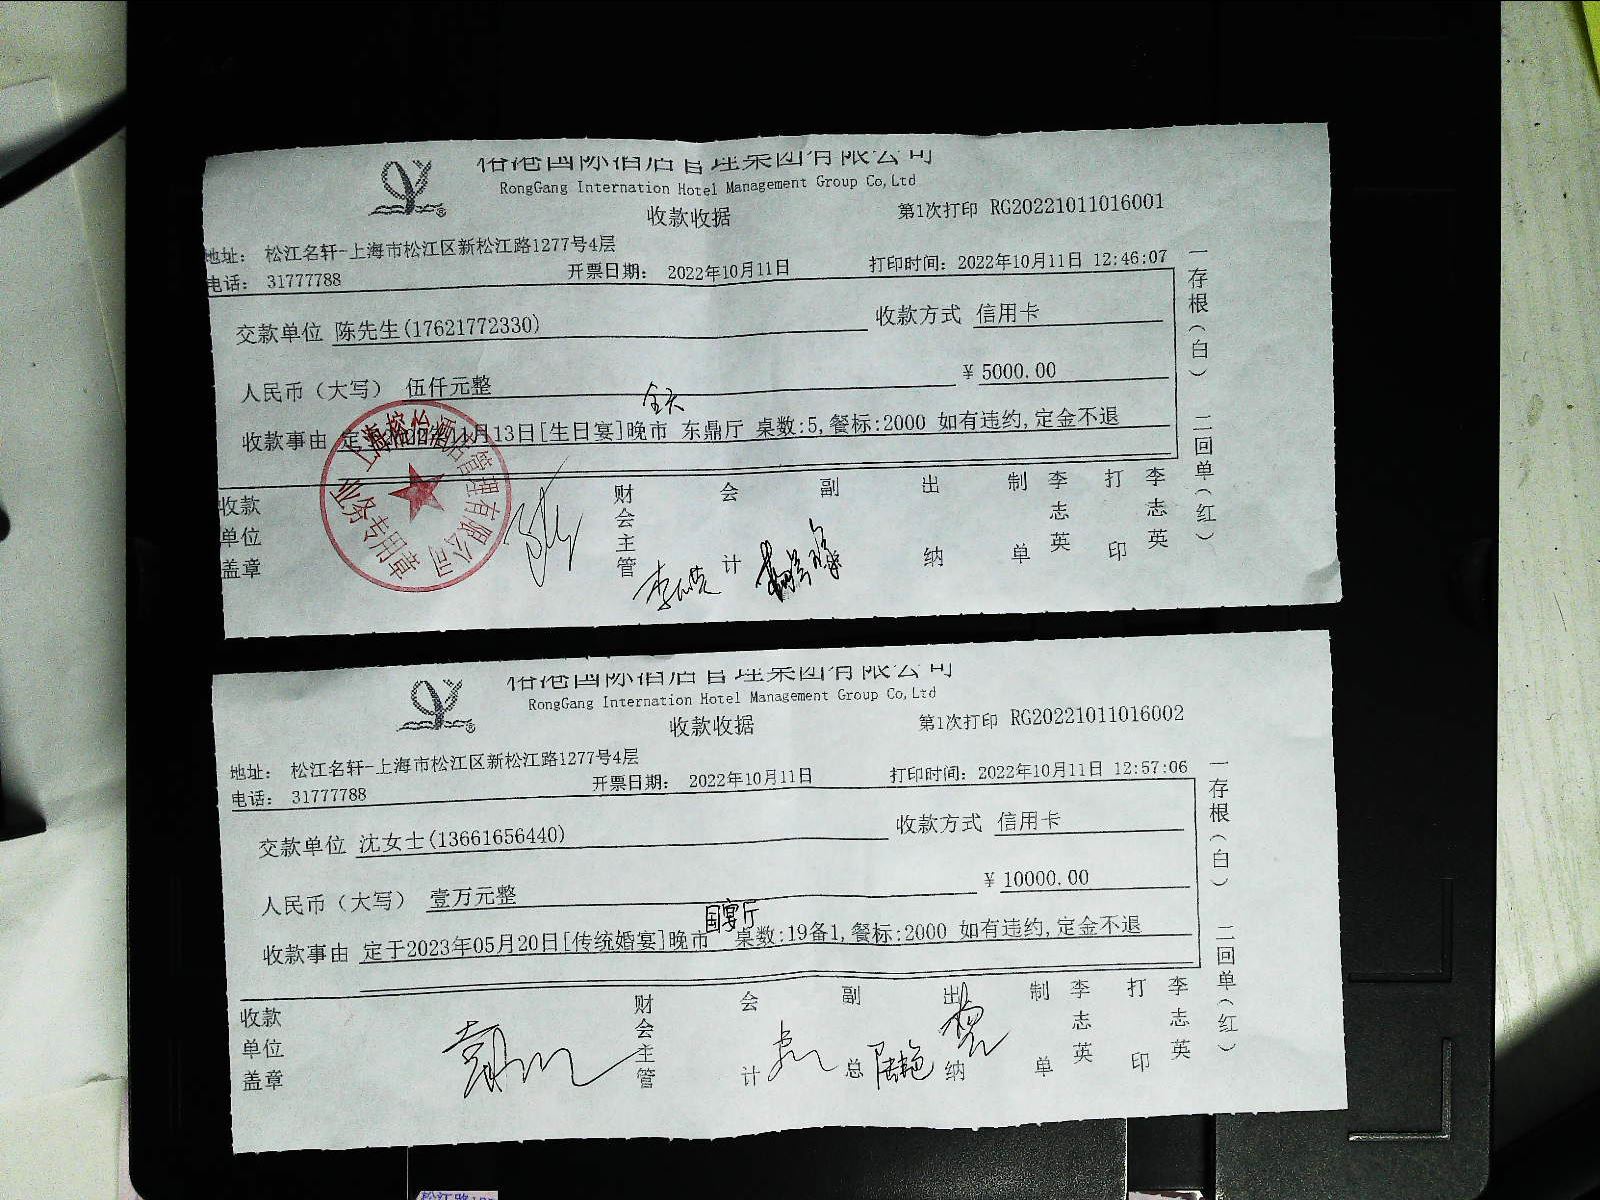 榕港国际酒店管理集团有限公司
RongGang Internation Hotel Management Group Co,Ltd
收款收据
第1次打印 RG20221011016001
地址: 松江名轩-上海市松江区新松江路1277号4层
电话: 31777788 开票日期: 2022年10月11日 打印时间: 2022年10月11日 12:46:07
交款单位 陈先生(17621772330) 收款方式 信用卡
人民币(大写) 伍仟元整 ¥ 5000.00
全天
收款事由 定于2022年11月13日[生日宴]晚市 东鼎厅 桌数:5,餐标:2000 如有违约,定金不退
收款单位盖章 财会主管 会计 副 出纳 制单 李志英 打印 李志英
一存根(白) 二回单(红)
上海榕怡酒店管理有限公司
业务专用章
榕港国际酒店管理集团有限公司
RongGang Internation Hotel Management Group Co,Ltd
收款收据
第1次打印 RG20221011016002
地址: 松江名轩-上海市松江区新松江路1277号4层
电话: 31777788 开票日期: 2022年10月11日 打印时间: 2022年10月11日 12:57:06
交款单位 沈女士(13661656440) 收款方式 信用卡
人民币(大写) 壹万元整 ¥ 10000.00
国宴厅
收款事由 定于2023年05月20日[传统婚宴]晚市 桌数:19备1,餐标:2000 如有违约,定金不退
收款单位盖章 财会主管 会计 副总 出纳 制单 李志英 打印 李志英
一存根(白) 二回单(红)